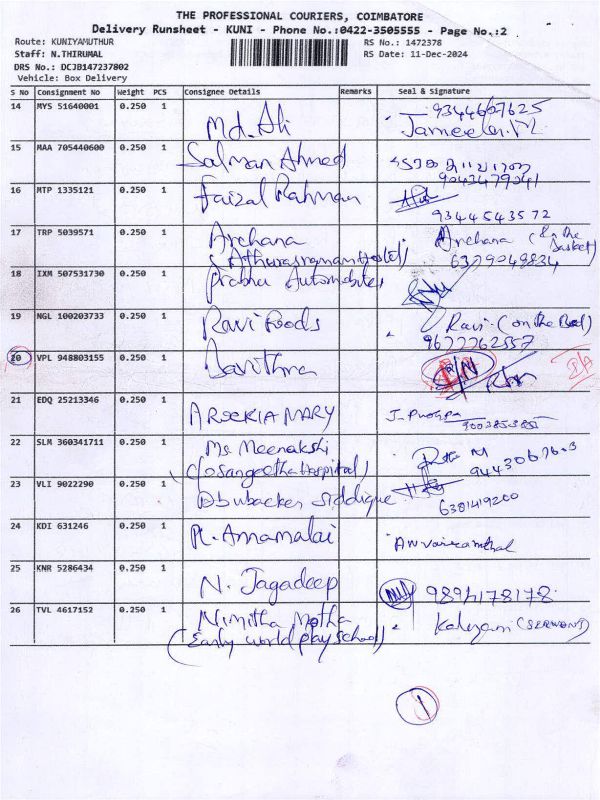 THE PROFESSIONAL COURIERS, COIMBATORE
Delivery Runsheet - KUNI - Phone No.:0422-3505555 - Page No.:2
Route: KUNIYAMUTHUR
RS No.: 1472378
Staff: N.THIRUMAL
RS Date: 11-Dec-2024
DRS No.: DCJB147237802
Vehicle: Box Delivery
S No Consignment No Weight PCS Consignee Details Remarks Seal & Signature
14 MYS 51640001 0.250 1 Md. Ali 9344607625
Jameela. M
15 MAA 705440600 0.250 1 Salman Ahmed
9043479041
16 MTP 1335121 0.250 1 Faizal Rahman
9344543572
17 TRP 5039571 0.250 1 Archana Archana (In the Basket)
(Athurasramam Hostel) 6379049834
18 IXM 507531730 0.250 1 Prabhu Automobiles
19 NGL 100203733 0.250 1 Ravi Foods Ravi (on the Bed)
9677762557
20 VPL 948803155 0.250 1 R/N
21 EDQ 25213346 0.250 1 AROCKIA MARY J. Pushpa
22 SLM 360341711 0.250 1 Ms. Meenakshi
(c/o Sangeetha Hospital)
23 VLI 9022290 0.250 1 Abubacker Siddique 6301419200
24 KDI 631246 0.250 1 Pl. Annamalai
25 KNR 5286434 0.250 1 N. Jagadeep 9894178178
26 TVL 4617152 0.250 1 Nimitha Motha Kalyani (SERVANT)
(Early world play school)
1